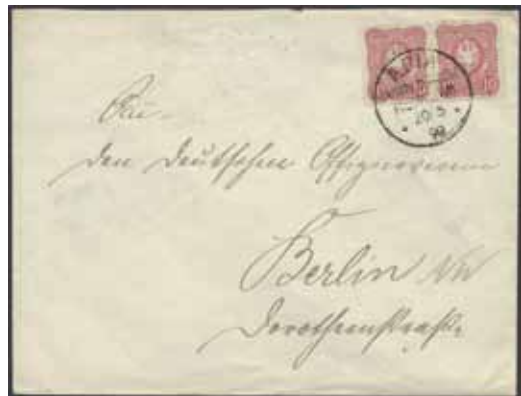 APIA
20 5
99
10
An
den Deutschen Offizierverein
Berlin NW
Dorotheenstraße